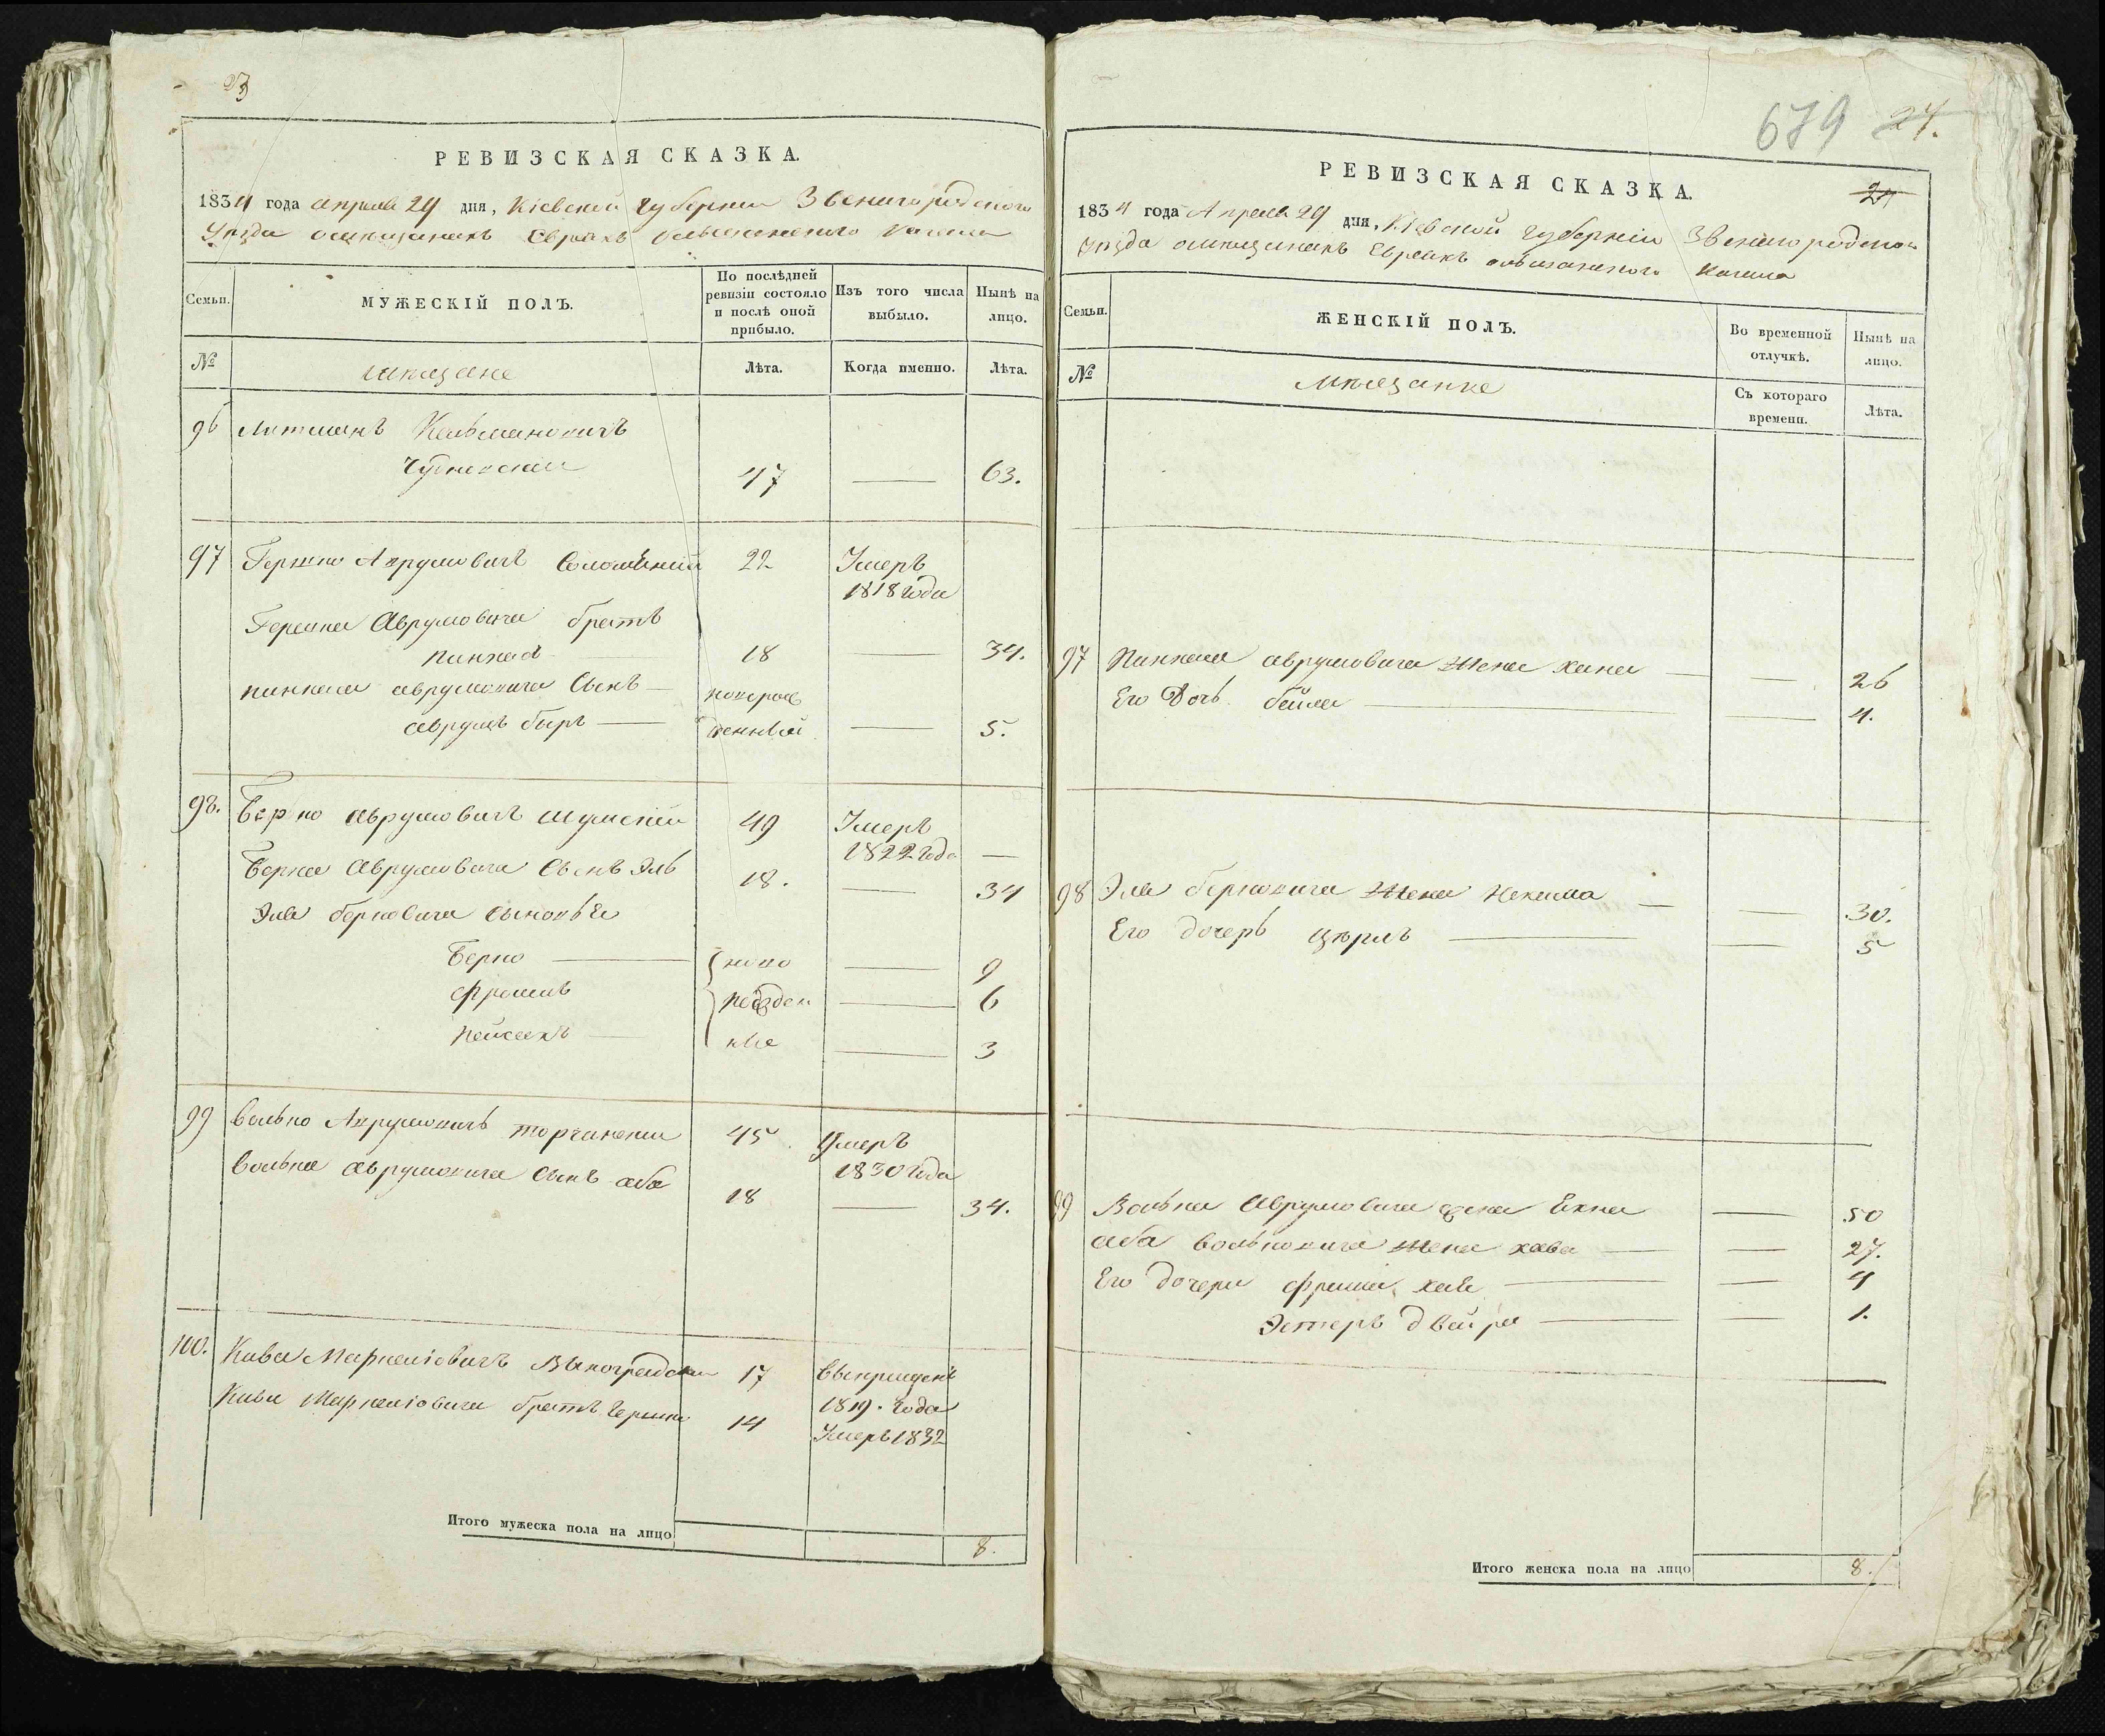 23
РЕВИЗСКАЯ СКАЗКА.
1834 года апреля 29 дня, Кіевской губерніи Звенигородского
Уезда о мещанахъ Евреяхъ Ольшанского кагала
Семьи.
МУЖЕСКІЙ ПОЛЪ.
По послѣдней ревизіи состояло и послѣ оной прибыло.
Изъ того числа выбыло.
Нынѣ на лицо.
№
мещане
Лѣта.
Когда именно.
Лѣта.
96 Литманъ Кельмановичъ
Чудновскій 47 — 63.
97 Гершко Аврумовичъ 22 Умеръ
1818 года
Гершка Аврумовича братъ
Пинхас 18 — 34.
Пинхаса Аврумовича Сынъ — новорож
Аврумъ Беръ — денный — 5.
98. Берко Аврумовичъ Шумскій 49 Умеръ
1822 года —
Берка Аврумовича Сынъ Эль 18. — 34
Эля Берковича Сыновья
Берко — ново — 9
Фроимъ рожден — 6
Пейсахъ — ные — 3
99 Волько Аврумовичъ Торчинскій 45. Умеръ
1830 года
Волька Аврумовича Сынъ Аба 18 — 34.
100. Кива Виноградскій 17
1819. года
Кивы братъ Гершко 14 Умеръ 1832
Итого мужеска пола на лицо 8.
679 24.
24
РЕВИЗСКАЯ СКАЗКА.
1834 года Апреля 29 дня, Кіевской губерніи Звенигородского
Уезда о мещанахъ Евреяхъ Ольшанского Кагала
Семьи.
ЖЕНСКІЙ ПОЛЪ.
Во временной отлучкѣ.
Нынѣ на лицо.
№
мещанки
Съ котораго времени.
Лѣта.
97 Пинхаса Аврумовича Жена Хана — — 26
Его Дочь Бейла — — 4.
98 Эля Берковича Жена Нехама — — 30.
Его дочерь — — 5
99 Волька Аврумовича жена — 50
Аба Вольковича Жена Хава — — 27.
Его дочери Фрима Хая — — 4
Эстеръ Двойра — — 1.
Итого женска пола на лицо 8.